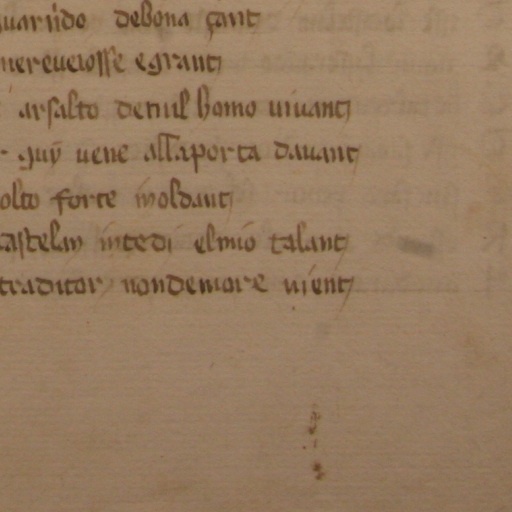 guarido de bona çant
mereveiosse e grant
arsalto de nul homo vivant
guy vene alla porta davant
olto forte inoldant
castelan intedi el mio talant
traditor non de more nient